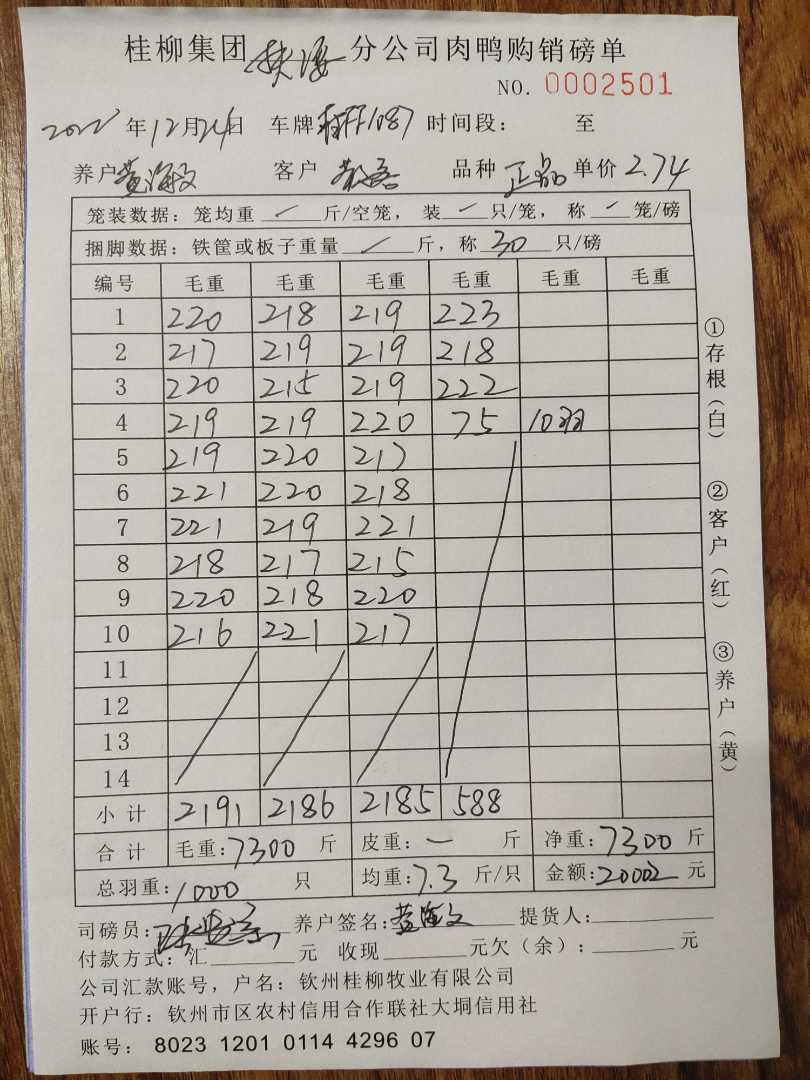 桂柳集团 分公司肉鸭购销磅单
NO. 0002501
2022年12月24日 车牌 1087 时间段： 至
养户黄海文 客户 品种 正品 单价 2.74
笼装数据：笼均重 / 斤/空笼，装 / 只/笼，称 / 笼/磅
捆脚数据：铁筐或板子重量 / 斤，称 30 只/磅
编号 毛重 毛重 毛重 毛重 毛重 毛重
1 220 218 219 223
2 217 219 219 218
3 220 215 219 222
4 219 219 220 75 10羽
5 219 220 217
6 221 220 218
7 221 219 221
8 218 217 215
9 220 218 220
10 216 221 217
11
12
13
14
小计 2191 2186 2185 588
合计 毛重：7300 斤 皮重：一 斤 净重：7300 斤
总羽重：1000 只 均重：7.3 斤/只 金额：20002 元
司磅员： 养户签名：黄海文 提货人：
付款方式：汇 元 收现 元欠（余）： 元
公司汇款账号，户名：钦州桂柳牧业有限公司
开户行：钦州市区农村信用合作联社大垌信用社
账号：8023 1201 0114 4296 07
①存根（白）
②客户（红）
③养户（黄）